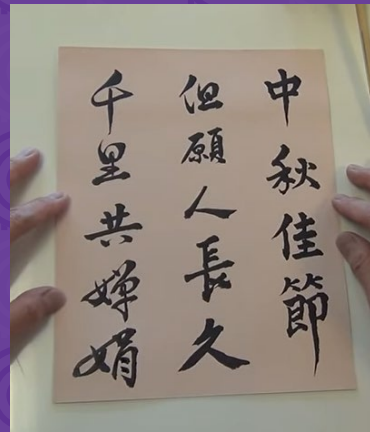 中秋佳節
但願人長久
千里共嬋娟